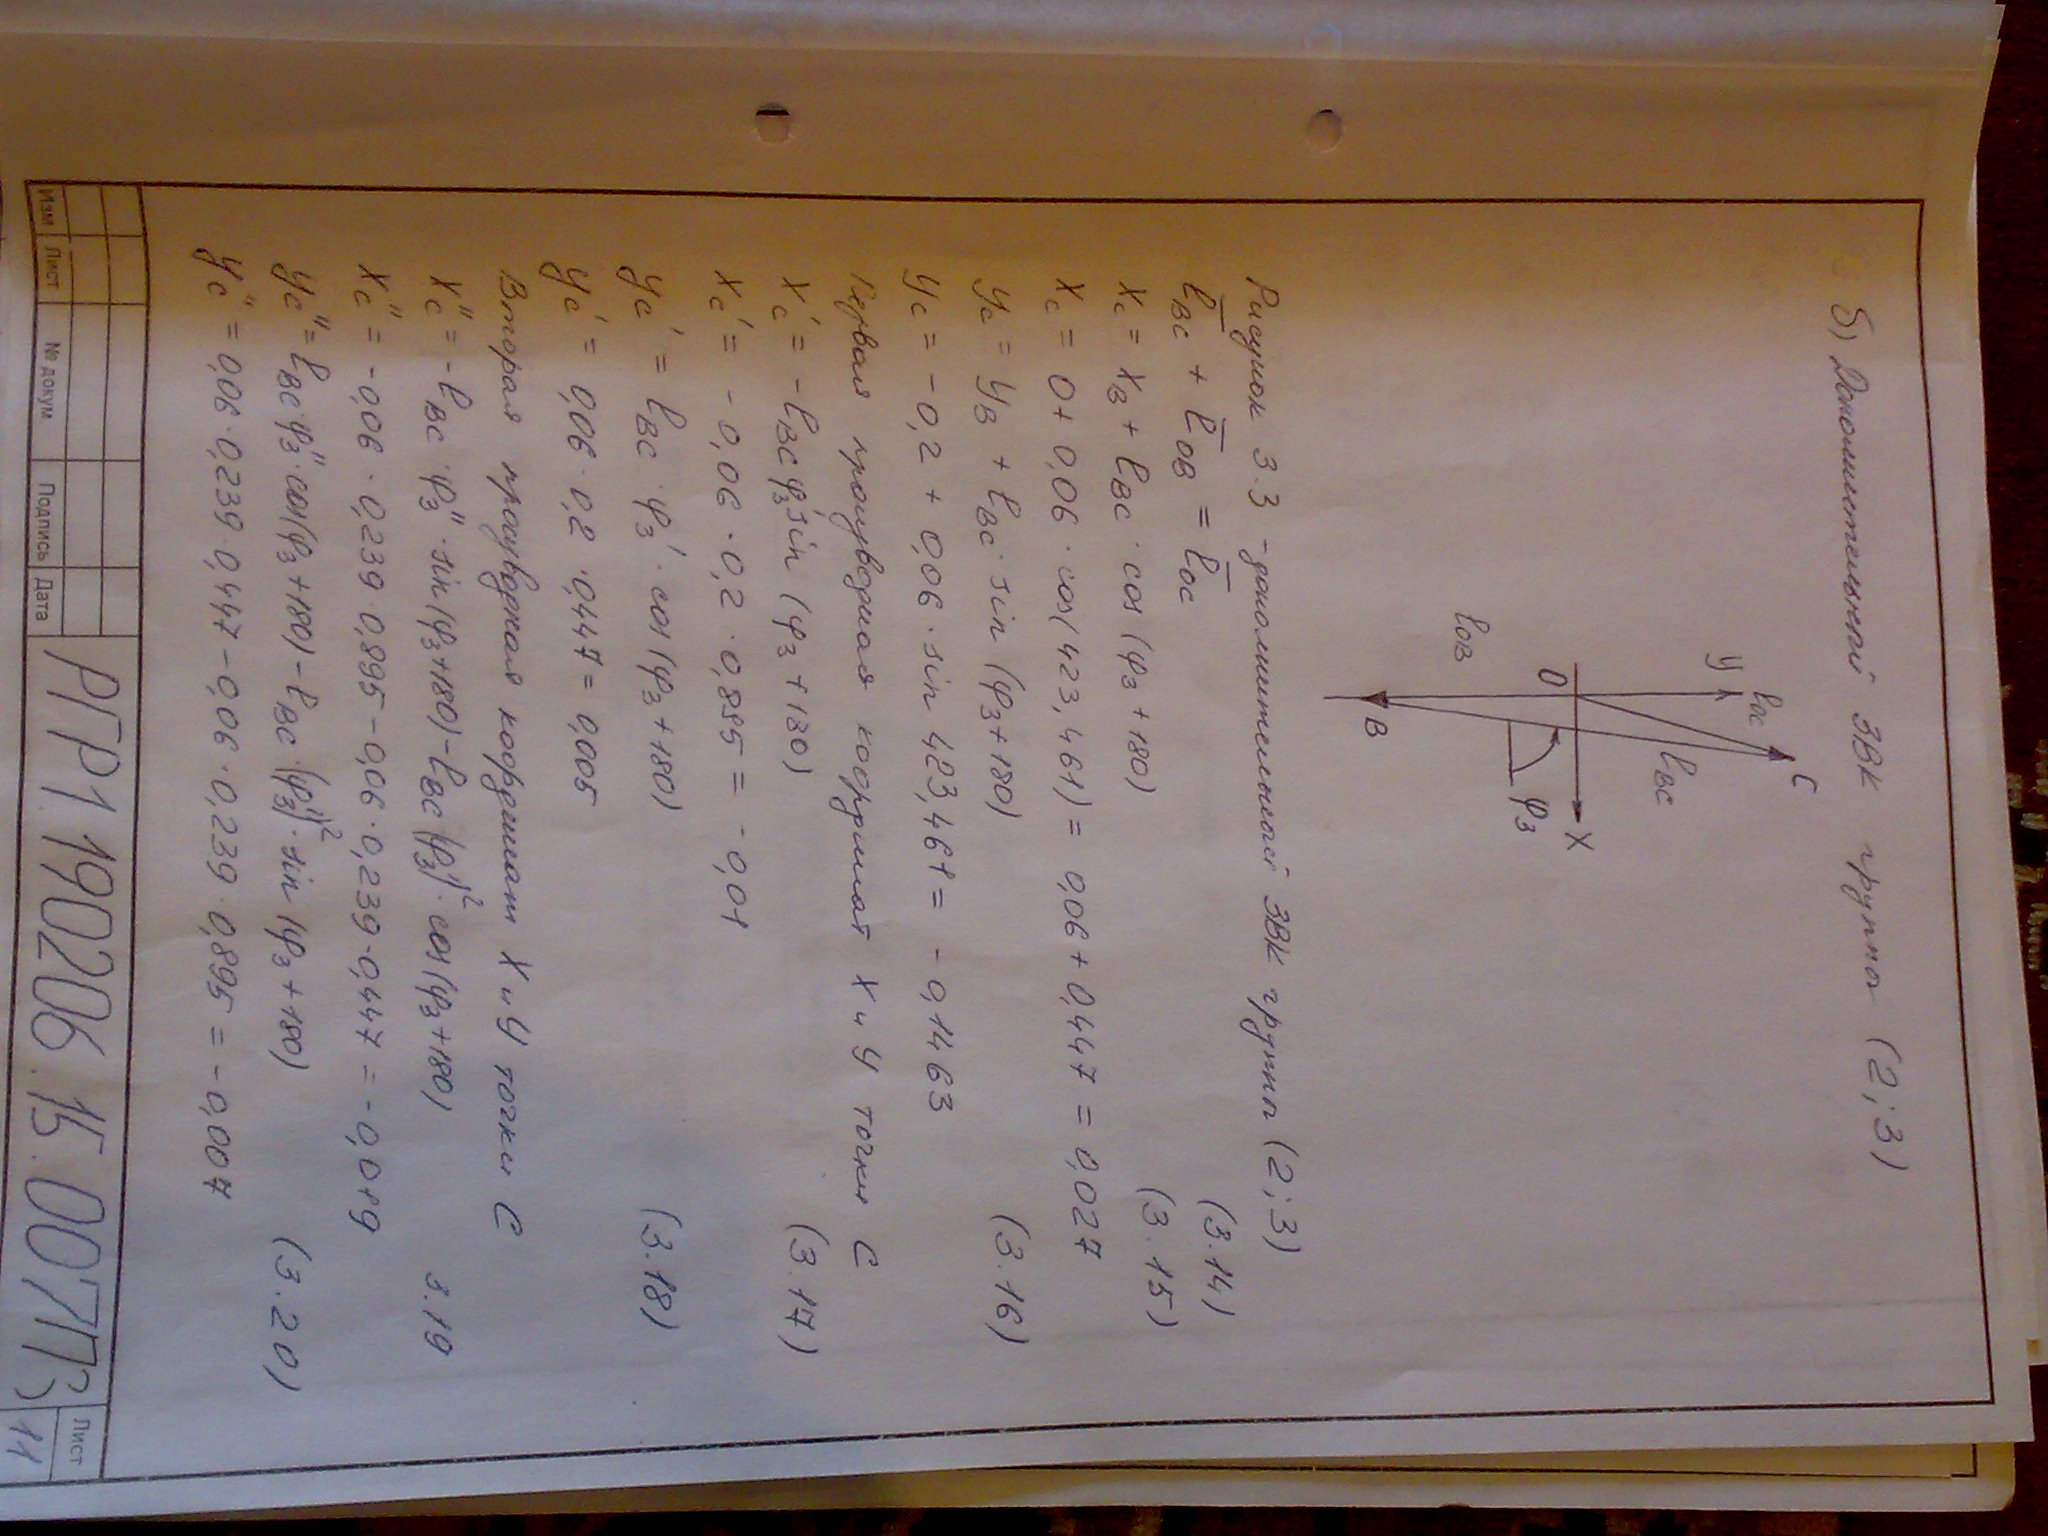 б) Дополнительный ЗВК группы (2;3)
y
lос
C
lBC
O
X
lOB
φ3
B
Рисунок 3.3 - дополнительный ЗВК групп (2;3)
l̄BC + l̄OB = l̄OC (3.14)
XC = XB + lBC · cos (φ3 + 180) (3.15)
XC = 0 + 0,06 · cos(423,461) = 0,06 + 0,447 = 0,027
YC = YB + lBC · sin (φ3 + 180) (3.16)
YC = - 0,2 + 0,06 · sin 423,461 = - 0,1463
Первая производная координат X и Y точки C
XC' = - lBC φ3' sin (φ3 + 180) (3.17)
XC' = - 0,06 · 0,2 · 0,895 = - 0,01
YC' = lBC · φ3' · cos (φ3 + 180) (3.18)
YC' = 0,06 · 0,2 · 0,447 = 0,005
Вторая производная координат X и Y точки C
XC'' = - lBC · φ3'' · sin (φ3 + 180) - lBC (φ3')² · cos (φ3 + 180) 3.19
XC'' = -0,06 · 0,239 · 0,8995 - 0,06 · 0,239 · 0,447 = - 0,019
YC'' = lBC · φ3'' · cos(φ3 + 180) - lBC · (φ3')² · sin (φ3 + 180) (3.20)
YC'' = 0,06 · 0,239 · 0,447 - 0,06 · 0,239 · 0,895 = - 0,007
Изм Лист № докум Подпись Дата
РГР1 190206.15.007ПЗ
Лист
11